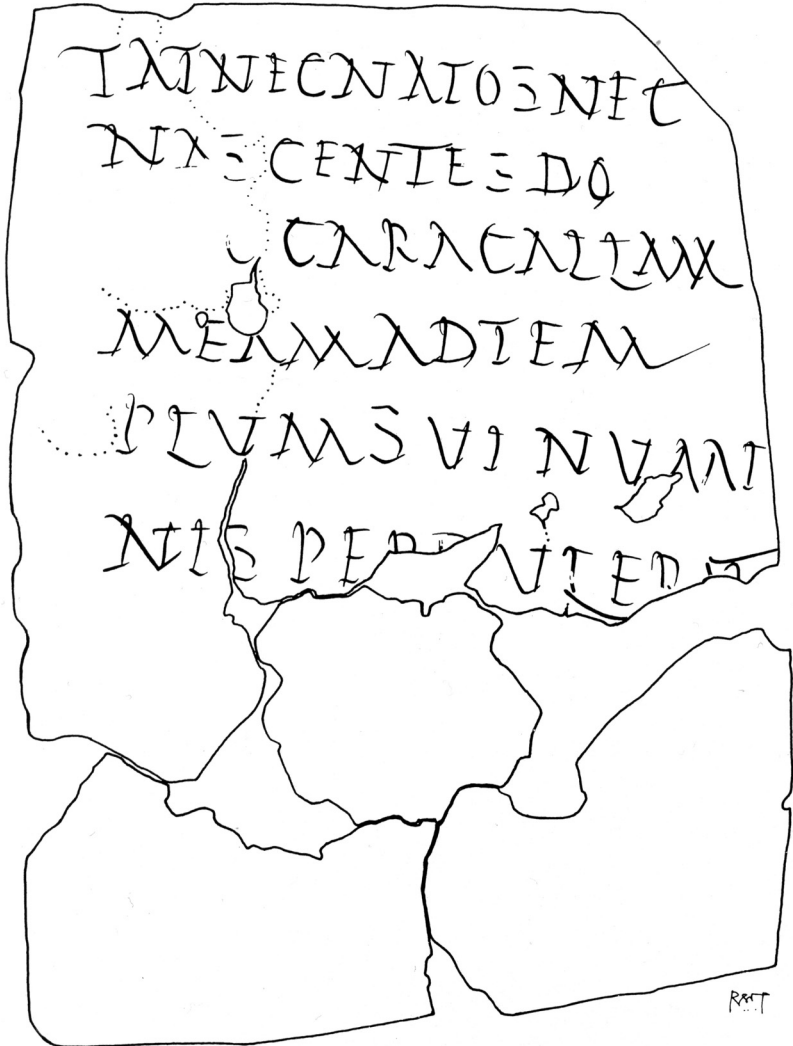 TATNECNATOSNEC
NASCENTESDO
C CARACALLAM
MEAMADTEM
PLVMSVINVMI
NIS PER VLER
RSOT